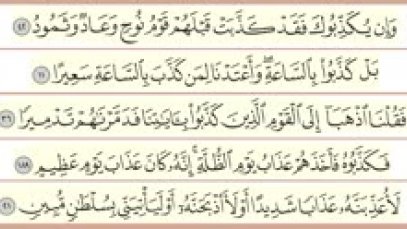 وَإِن يُكَذِّبُوكَ فَقَدْ كَذَّبَتْ قَبْلَهُمْ قَوْمُ نُوحٍ وَعَادٌ وَثَمُودُ ٤٢
بَلْ كَذَّبُوا۟ بِٱلسَّاعَةِ ۖ وَأَعْتَدْنَا لِمَن كَذَّبَ بِٱلسَّاعَةِ سَعِيرًا ١١
فَقُلْنَا ٱذْهَبَآ إِلَى ٱلْقَوْمِ ٱلَّذِينَ كَذَّبُوا۟ بِـَٔايَـٰتِنَا فَدَمَّرْنَـٰهُمْ تَدْمِيرًا ٣٦
فَكَذَّبُوهُ فَأَخَذَهُمْ عَذَابُ يَوْمِ ٱلظُّلَّةِ ۚ إِنَّهُۥ كَانَ عَذَابَ يَوْمٍ عَظِيمٍ ١٨٩
لَأُعَذِّبَنَّهُۥ عَذَابًا شَدِيدًا أَوْ لَأَا۟ذْبَحَنَّهُۥٓ أَوْ لَيَأْتِيَنِّى بِسُلْطَـٰنٍ مُّبِينٍ ٢١